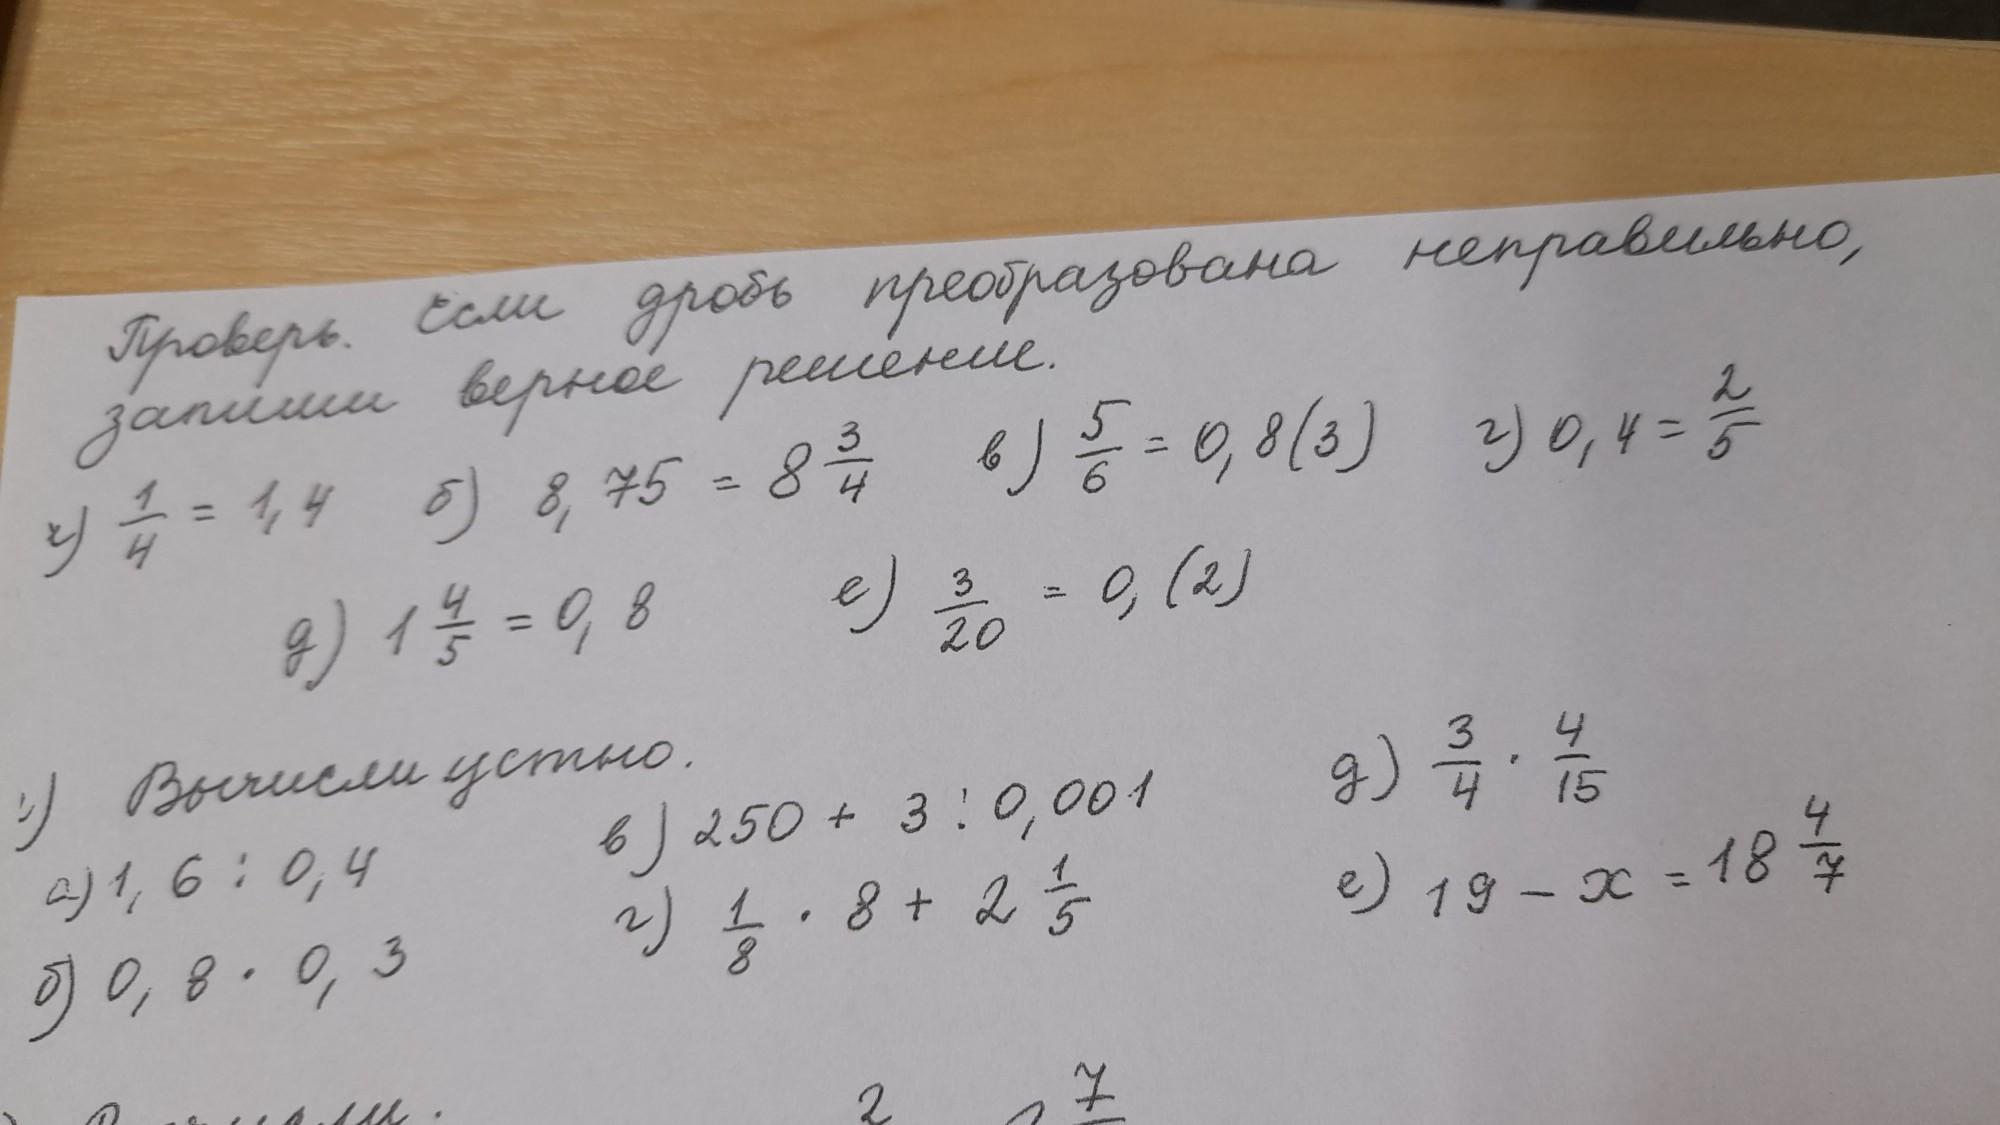 Проверь. Если дробь преобразована неправильно,
запиши верное решение.
ч) 1/4 = 1,4 б) 8,75 = 8 3/4 в) 5/6 = 0,8(3) г) 0,4 = 2/5
д) 1 4/5 = 0,8 е) 3/20 = 0,(2)
Вычисли устно.
а) 1,6 : 0,4 в) 250 + 3 : 0,001 д) 3/4 · 4/15
б) 0,8 · 0,3 г) 1/8 · 8 + 2 1/5 е) 19 - x = 18 4/7
2 7